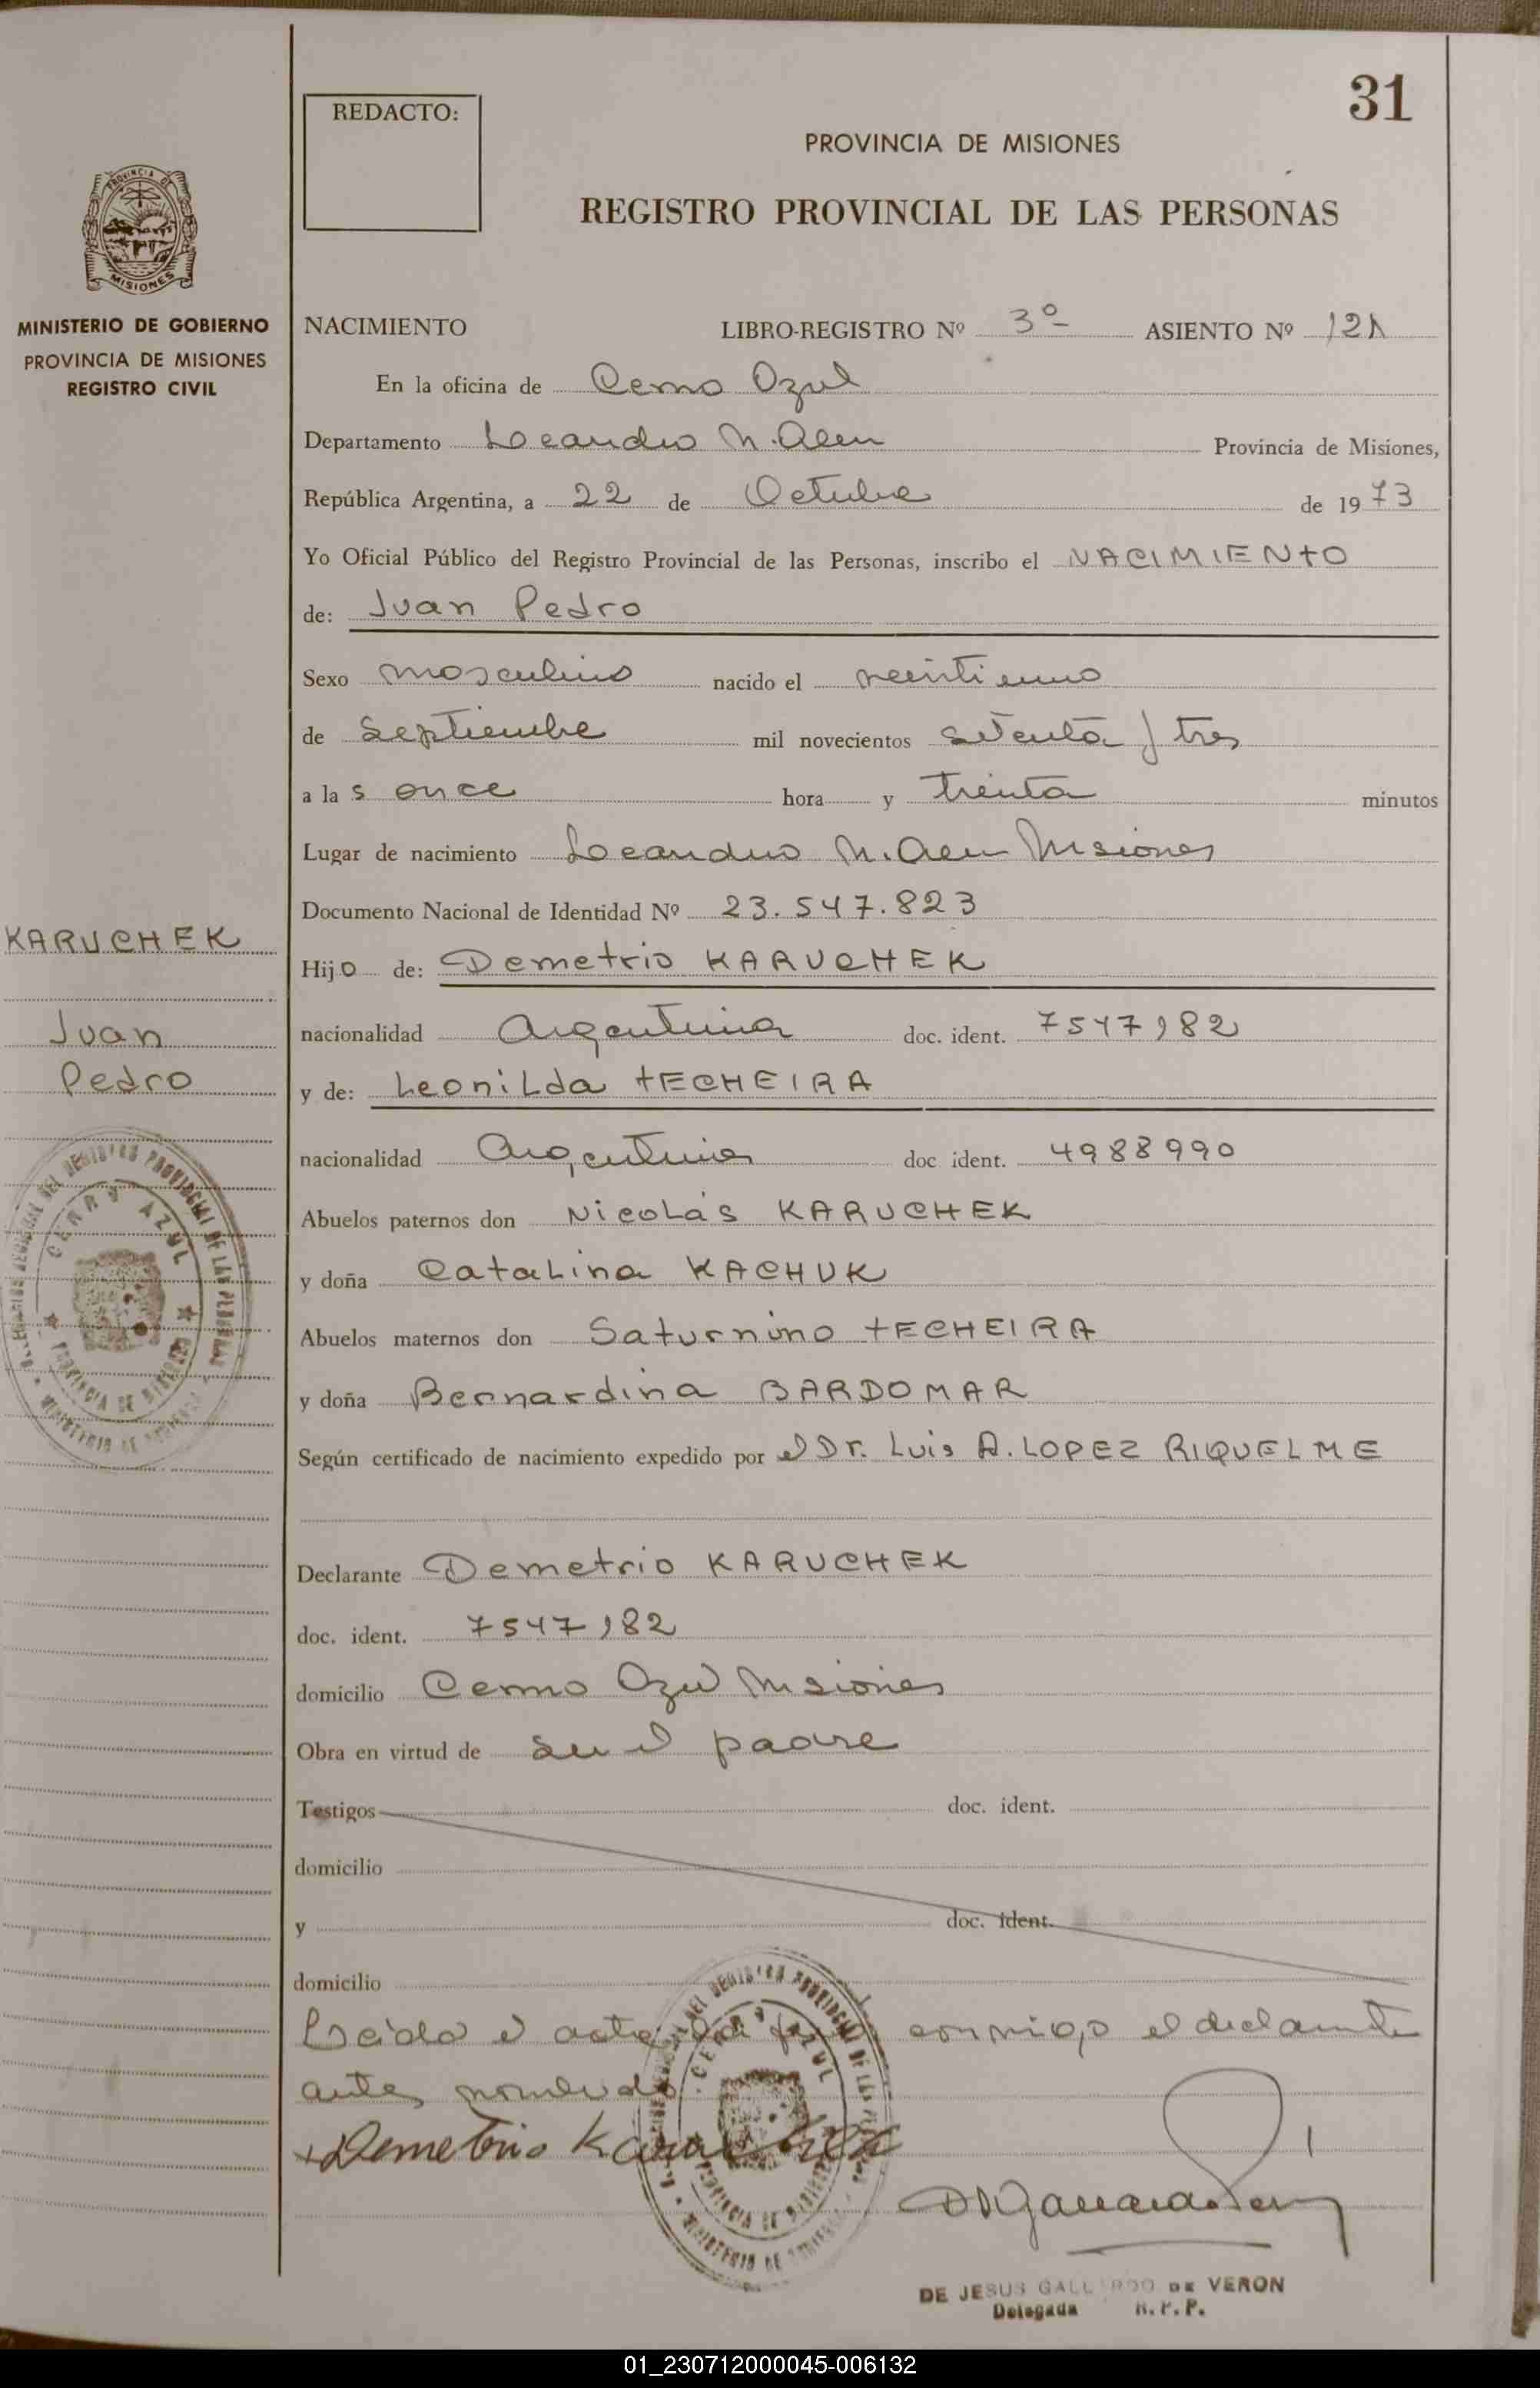 31
REDACTO:
PROVINCIA DE MISIONES
REGISTRO PROVINCIAL DE LAS PERSONAS
PROVINCIA DE
MISIONES
MINISTERIO DE GOBIERNO
PROVINCIA DE MISIONES
REGISTRO CIVIL
NACIMIENTO LIBRO-REGISTRO Nº 3º ASIENTO Nº 121
En la oficina de Cerro Azul
Departamento Leandro N. Alem Provincia de Misiones,
República Argentina, a 22 de Octubre de 1973
Yo Oficial Público del Registro Provincial de las Personas, inscribo el NACIMIENTO
de: Juan Pedro
Sexo masculino nacido el veintiuno
de Septiembre mil novecientos setenta y tres
a las once hora y treinta minutos
Lugar de nacimiento Leandro N. Alem Misiones
Documento Nacional de Identidad Nº 23.547.823
KARUCHEK
Juan
Pedro
Hijo de: Demetrio KARUCHEK
nacionalidad Argentina doc. ident. 7547182
y de: Leonilda TECHEIRA
nacionalidad Argentina doc ident. 4988990
Abuelos paternos don Nicolás KARUCHEK
y doña Catalina KACHUK
Abuelos maternos don Saturnino TECHEIRA
y doña Bernardina BARDOMAR
Según certificado de nacimiento expedido por el Dr. Luis A. LOPEZ RIQUELME
Declarante Demetrio KARUCHEK
doc. ident. 7547182
domicilio Cerro Azul Misiones
Obra en virtud de ser el padre
Testigos doc. ident.
domicilio
y doc. ident.
domicilio
Leida el acta la conmigo el declarante
antes nombrado.
Demetrio Karuchek
DE JESUS GALLARDO DE VERON
Delegada R. P. P.
CERRO AZUL
PROVINCIA DE MISIONES
01_230712000045-006132